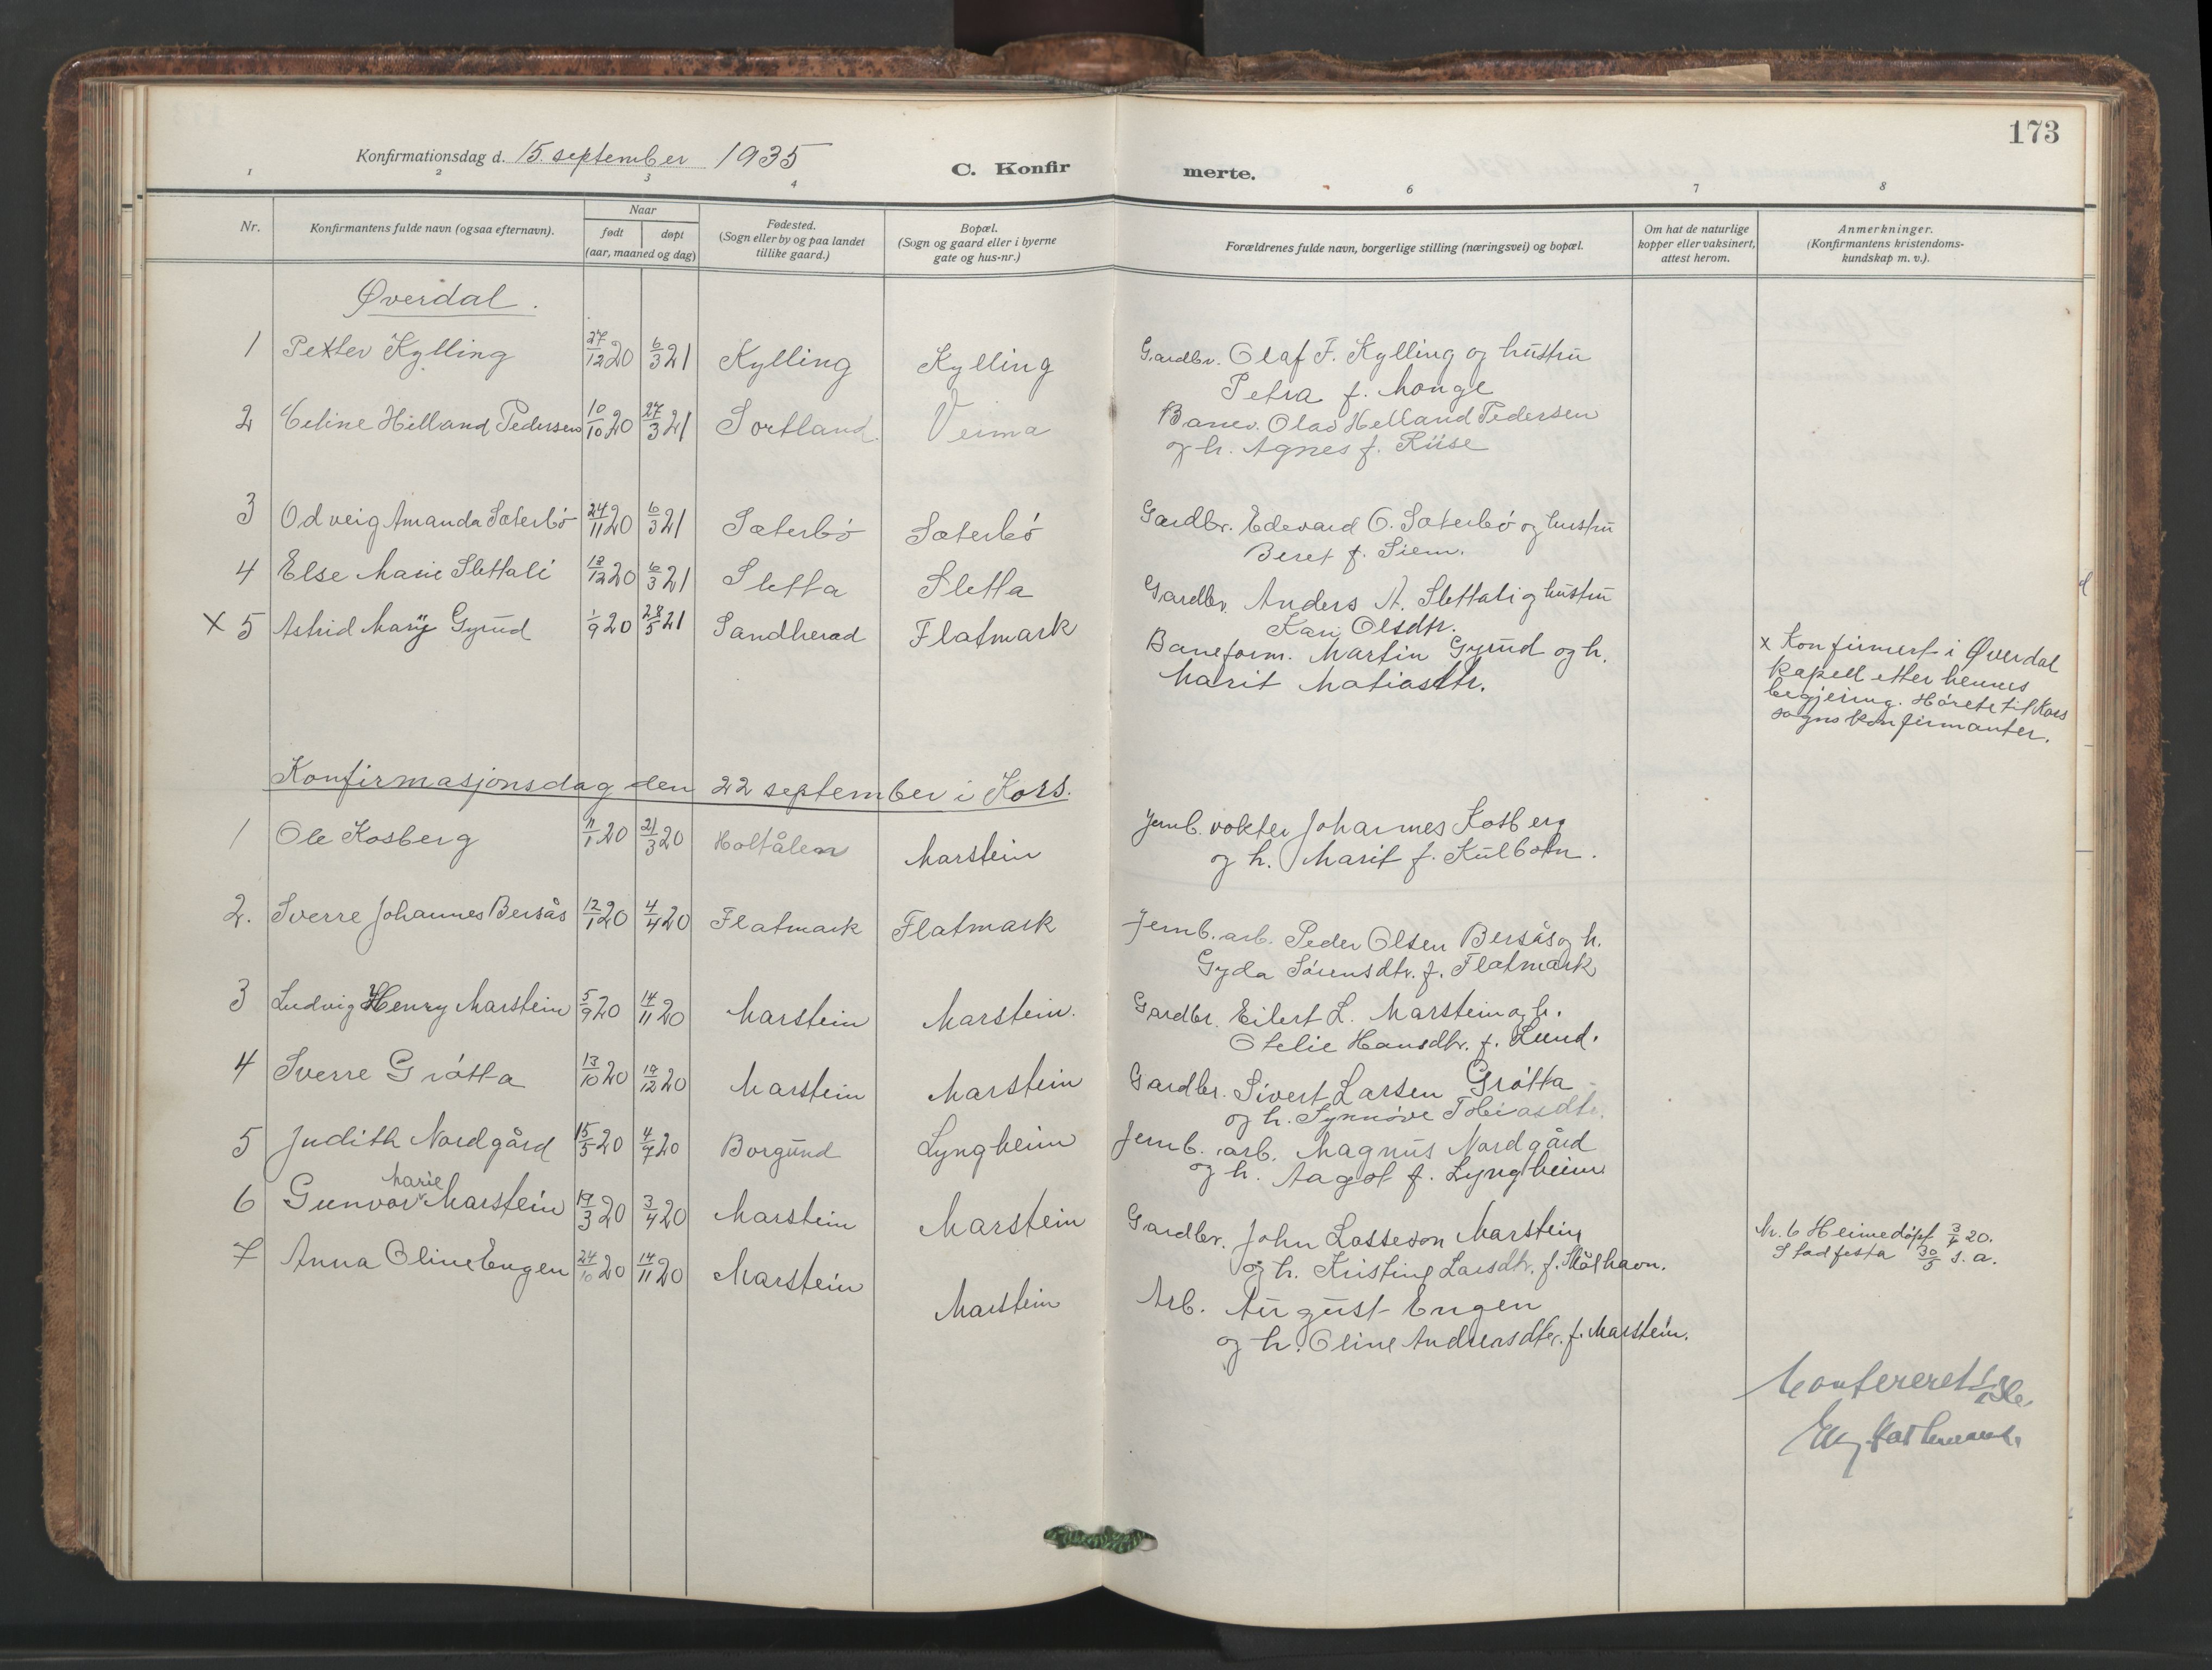 173
Konfirmationsdag d. 15. september 1935
C. Konfirmerte.
1 2 3 4 6 7 8
Nr.
Konfirmantens fulde navn (ogsaa efternavn).
Naar
født døpt
(aar, maaned og dag)
Fødested.
(Sogn eller by og paa landet
tillike gaard.)
Bopæl.
(Sogn og gaard eller i byerne
gate og hus-nr.)
Forældrenes fulde navn, borgerlige stilling (næringsvei) og bopæl.
Om hat de naturlige
kopper eller vaksinert,
attest herom.
Anmerkninger.
(Konfirmantens kristendoms-
kundskap m. v.).
Øverdal.
1 Petter Kylling 27/12 20 6/3 21 Kylling Kylling Gardbr. Olaf F. Kylling og hustru
Petra f. Monge
2 Celine Hilland Pedersen 10/10 20 27/3 21 Sortland. Veima Banev. Olav Helland Pedersen
og h. Agnes f. Riise
3 Odveig Amanda Sæterbö 24/11 20 6/3 21 Sæterbö Sæterbö Gardbr. Edevard O. Sæterbö og hustru
Beret f. Siem.
4 Else Marie Slettali 18/12 20 6/3 21 Sletta Sletta Gardbr. Anders A. Slettali og hustru
Kari Olsdtr.
x 5 Astrid Mary Gyrud 1/9 20 28/5 21 Sandherad Flatmark Baneform. Martin Gyrud og h.
Marit Matiasdtr.
x Konfirmert i Øverdal
kapell etter hennes
begjering. Hörete til Kors
sogns konfirmanter.
Konfirmasjonsdag den 22 september i Kors.
1 Ole Kosberg 11/1 20 21/3 20 Holtålen Marstein Jernb. vokter Johannes Kosberg
og h. Marit f. Kulbotn.
2. Sverre Johannes Bersås 12/1 20 4/4 20 Flatmark Flatmark Jernb. arb. Peder Olsen Bersås og h.
Gyda Sörensdtr. f. Flatmark
3 Ludvig Henry Marstein 5/9 20 14/11 20 Marstein Marstein. Gardbr. Eilert L. Marstein og h.
Otelie Hansdtr. f. Lund.
4 Sverre Grötta 13/10 20 19/12 20 Marstein Marstein Gardbr. Sivert Larsen Grötta
og h. Synnöve Tobiasdtr.
5 Judith Nordgård 15/5 20 4/7 20 Borgund Lyngheim Jernb. arb. Magnus Nordgård
og h. Aagot f. Lyngheim
6 Gunvor Marie Marstein 19/3 20 3/4 20 Marstein Marstein Gardbr. John Lasseson Marstein
og h. Kristine Larsdtr. f. Skålhavn.
Nr. 6 Heimedöpt 3/4 20.
Stadfesta 30/5 s. a.
7 Anna Oline Engen 24/10 20 14/11 20 Marstein Marstein Arb. August Engen
og h. Oline Andreasdtr. f. Marstein.
Confereret